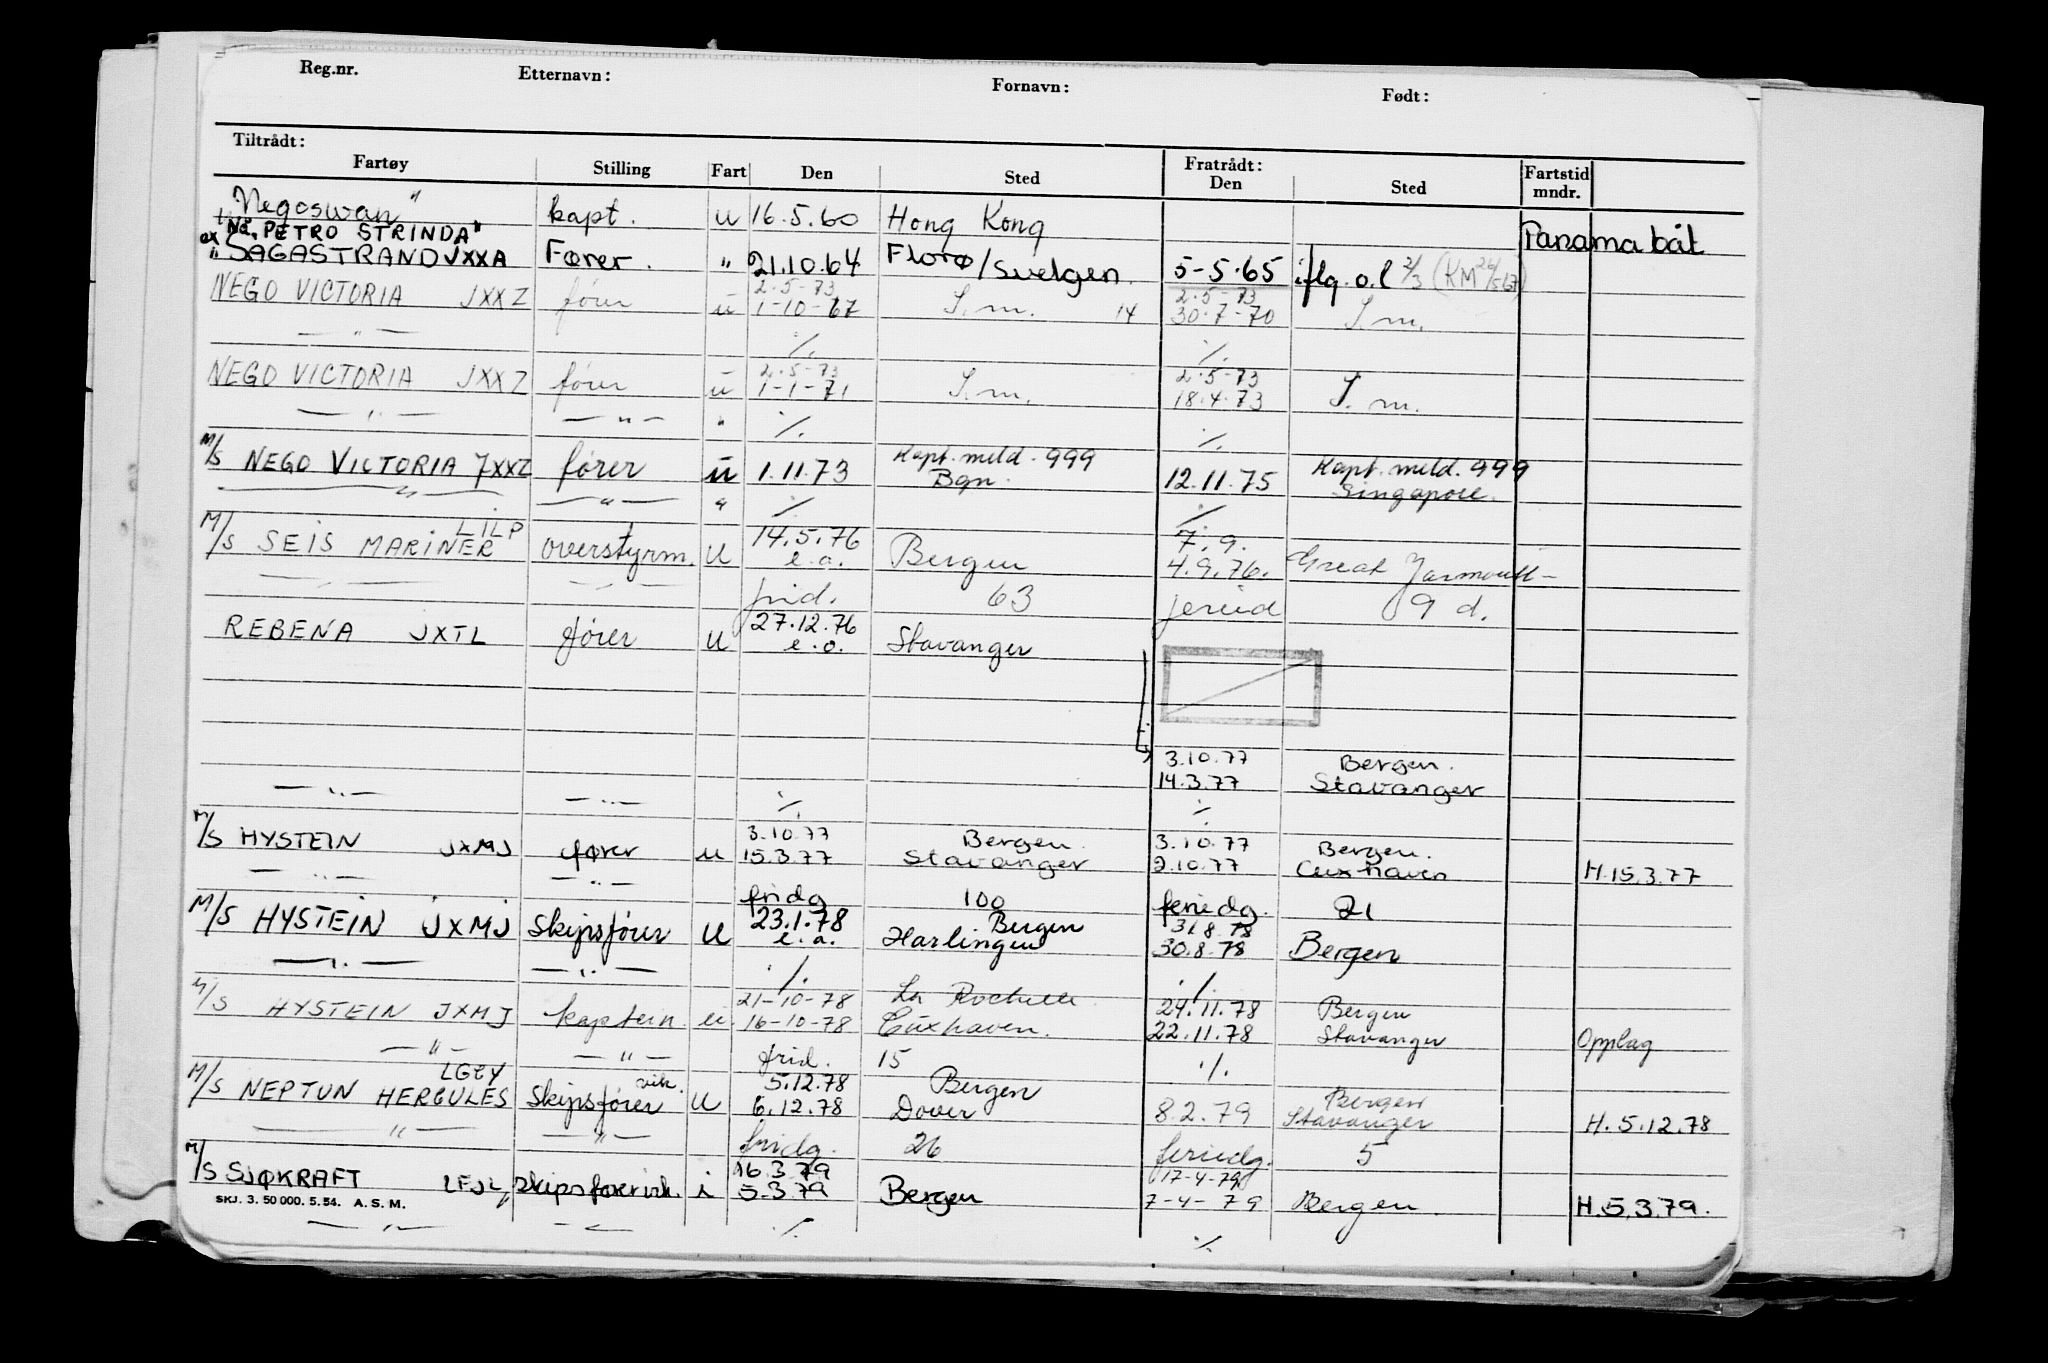 Reg.nr. Etternavn: Fornavn: Født:
Tiltrådt: Fratrådt: Fartstid
Fartøy Stilling Fart Den Sted Den Sted mndr.
"Negoswan" kapt. u 16.5.60 Hong Kong Panama båt
nå "PETRO STRINDA"
ex "SAGASTRAND JXXA Fører. " 21.10.64 Florø/Svelgen. 5-5-65 iflg. o.l 2/3 (KM 26/5-67)
2-5-73 2-5-73
NEGO VICTORIA JXXZ fører u 1-10-67 S.m. 14 30-7-70 S.m.
— " — ./. ./.
2-5-73 2-5-73
NEGO VICTORIA JXXZ fører u 1-1-71 S.m. 18.4.73 S.m.
— " — — " — " ./. ./.
Kapt. meld. 999 Kapt. meld. 999
M/S NEGO VICTORIA JXXZ fører u 1.11.73 Bgn. 12.11.75 Singapore.
— " — — " — " ./. ./.
LILP 14.5.76 7.9.
M/S SEIS MARINER overstyrm. u e.a. Bergen 4.9.76. Great Yarmouth
— " — — " — frid. 63 feried 9 d.
27.12.76
REBENA JXTL fører u e.o. Stavanger
3.10.77 Bergen.
14.3.77 Stavanger
— " — — " — ./. ./.
3.10.77 Bergen. 3.10.77 Bergen.
M/S HYSTEIN JXMJ fører u 15.3.77 Stavanger 2.10.77 Cuxhaven H.15.3.77
— " — — " — fridg 100 feriedg. 21
23.1.78 Bergen 31.8.78
M/S HYSTEIN JXMJ Skipsfører u e.a. Harlingen 30.8.78 Bergen
— " — — " — ./. ./.
21-10-78 La Rochelle 24.11.78 Bergen
M/S HYSTEIN JXMJ kaptein u 16-10-78 Cuxhaven. 22.11.78 Stavanger Opplag
— " — — " — frid. 15 ./.
vik. 5.12.78 Bergen Bergen
M/S NEPTUN HERCULES Skipsfører u 6.12.78 Dover 8.2.79 Stavanger H. 5.12.78
— " — — " — fridg. 26 feriedg. 5
16.3.79 17-4-79
M/S SJØKRAFT LFJL Skipsfører vik. i 5.3.79 Bergen 7-4-79 Bergen. H.5.3.79.
SKJ. 3. 50 000. 5.54. A. S. M.
— " — — " — ./. ./.